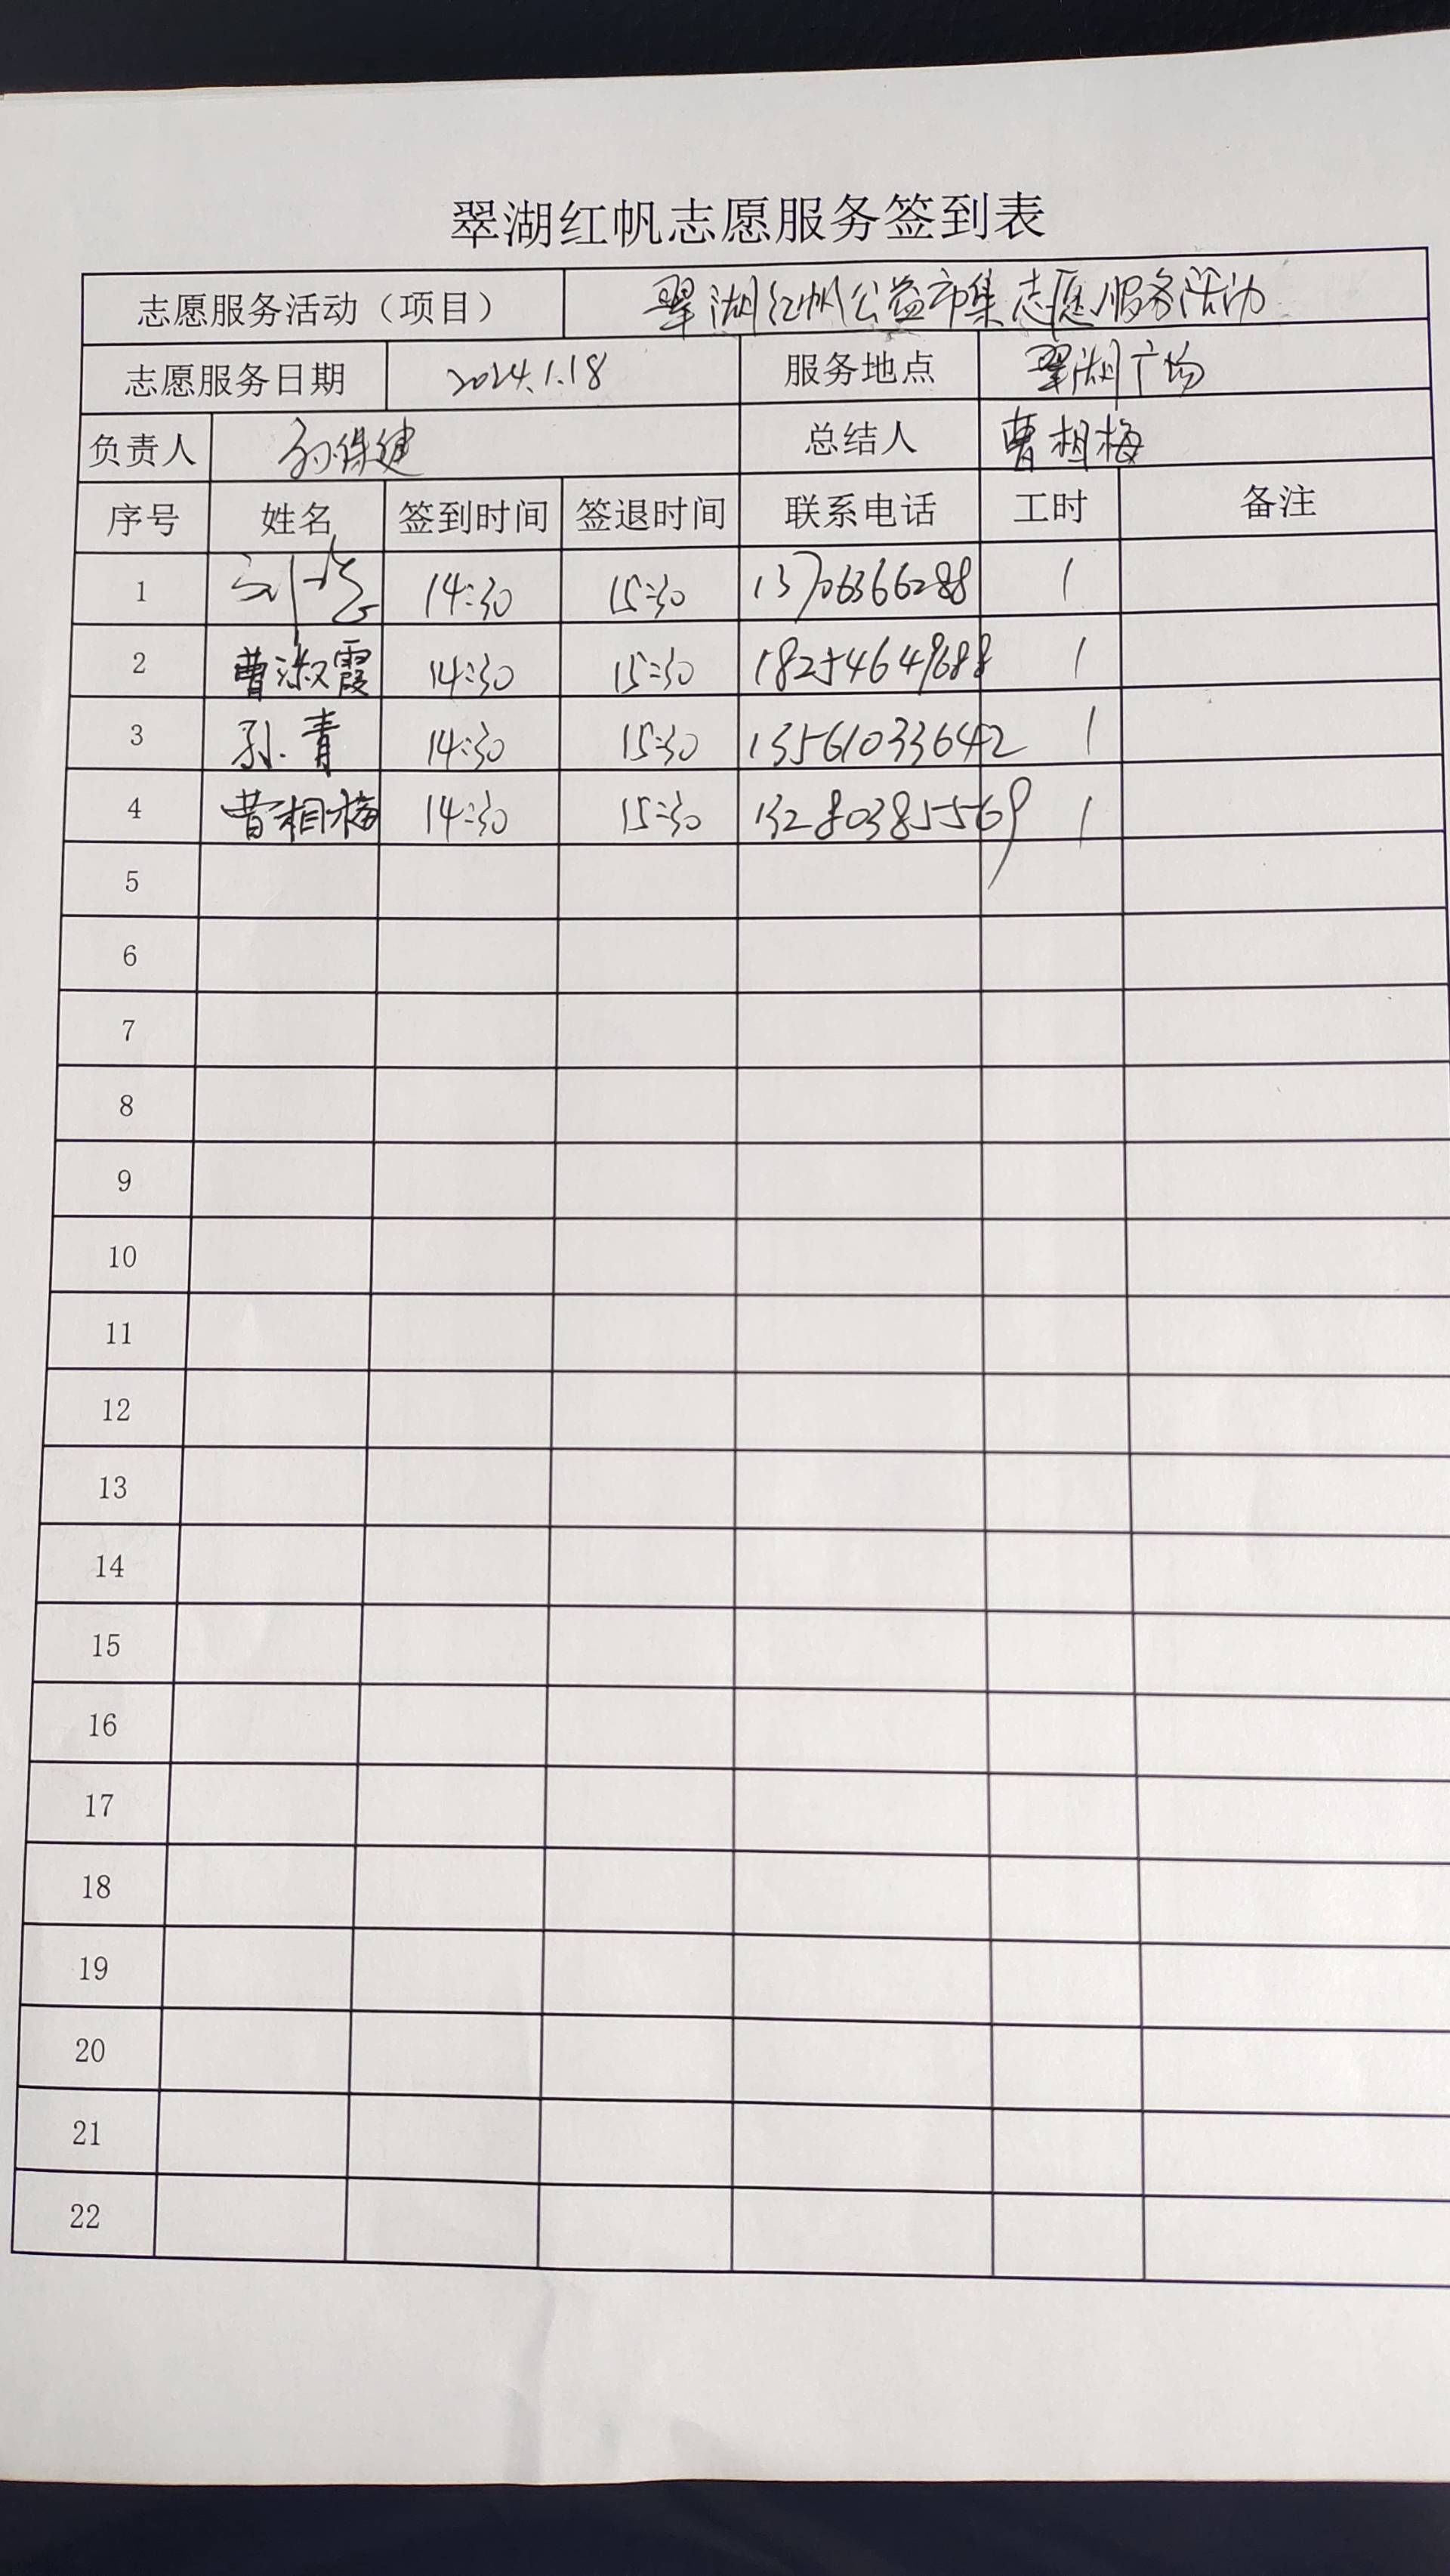 翠湖红帆志愿服务签到表
志愿服务活动（项目） 翠湖红帆公益市集志愿服务活动
志愿服务日期 2024.1.18 服务地点 翠湖广场
负责人 孙保建 总结人 曹相梅
序号 姓名 签到时间 签退时间 联系电话 工时 备注
1 14:30 15:30 13706366288 1
2 曹淑霞 14:30 15:30 18254649688 1
3 孙青 14:30 15:30 13561033642 1
4 曹相梅 14:30 15:30 13280385569 1
5
6
7
8
9
10
11
12
13
14
15
16
17
18
19
20
21
22